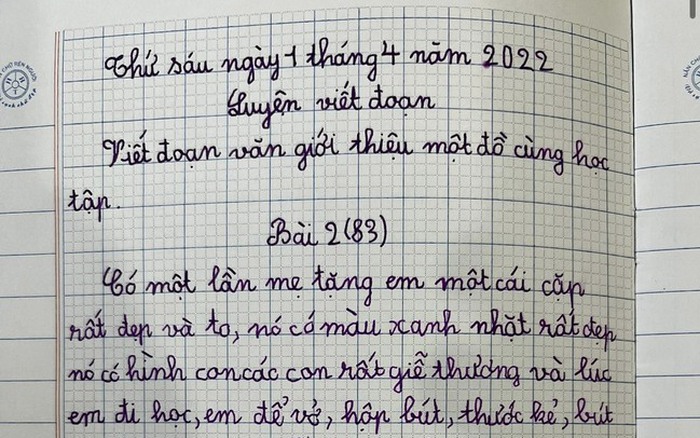 Thứ sáu ngày 1 tháng 4 năm 2022
Luyện viết đoạn
Viết đoạn văn giới thiệu một đồ cùng học
tập.
Bài 2 (83)
Có một lần mẹ tặng em một cái cặp
rất đẹp và to, nó có màu xanh nhạt rất đẹp
nó có hình con các con rất giễ thương và lúc
em đi học, em để vở, hộp bút, thước kẻ, bút